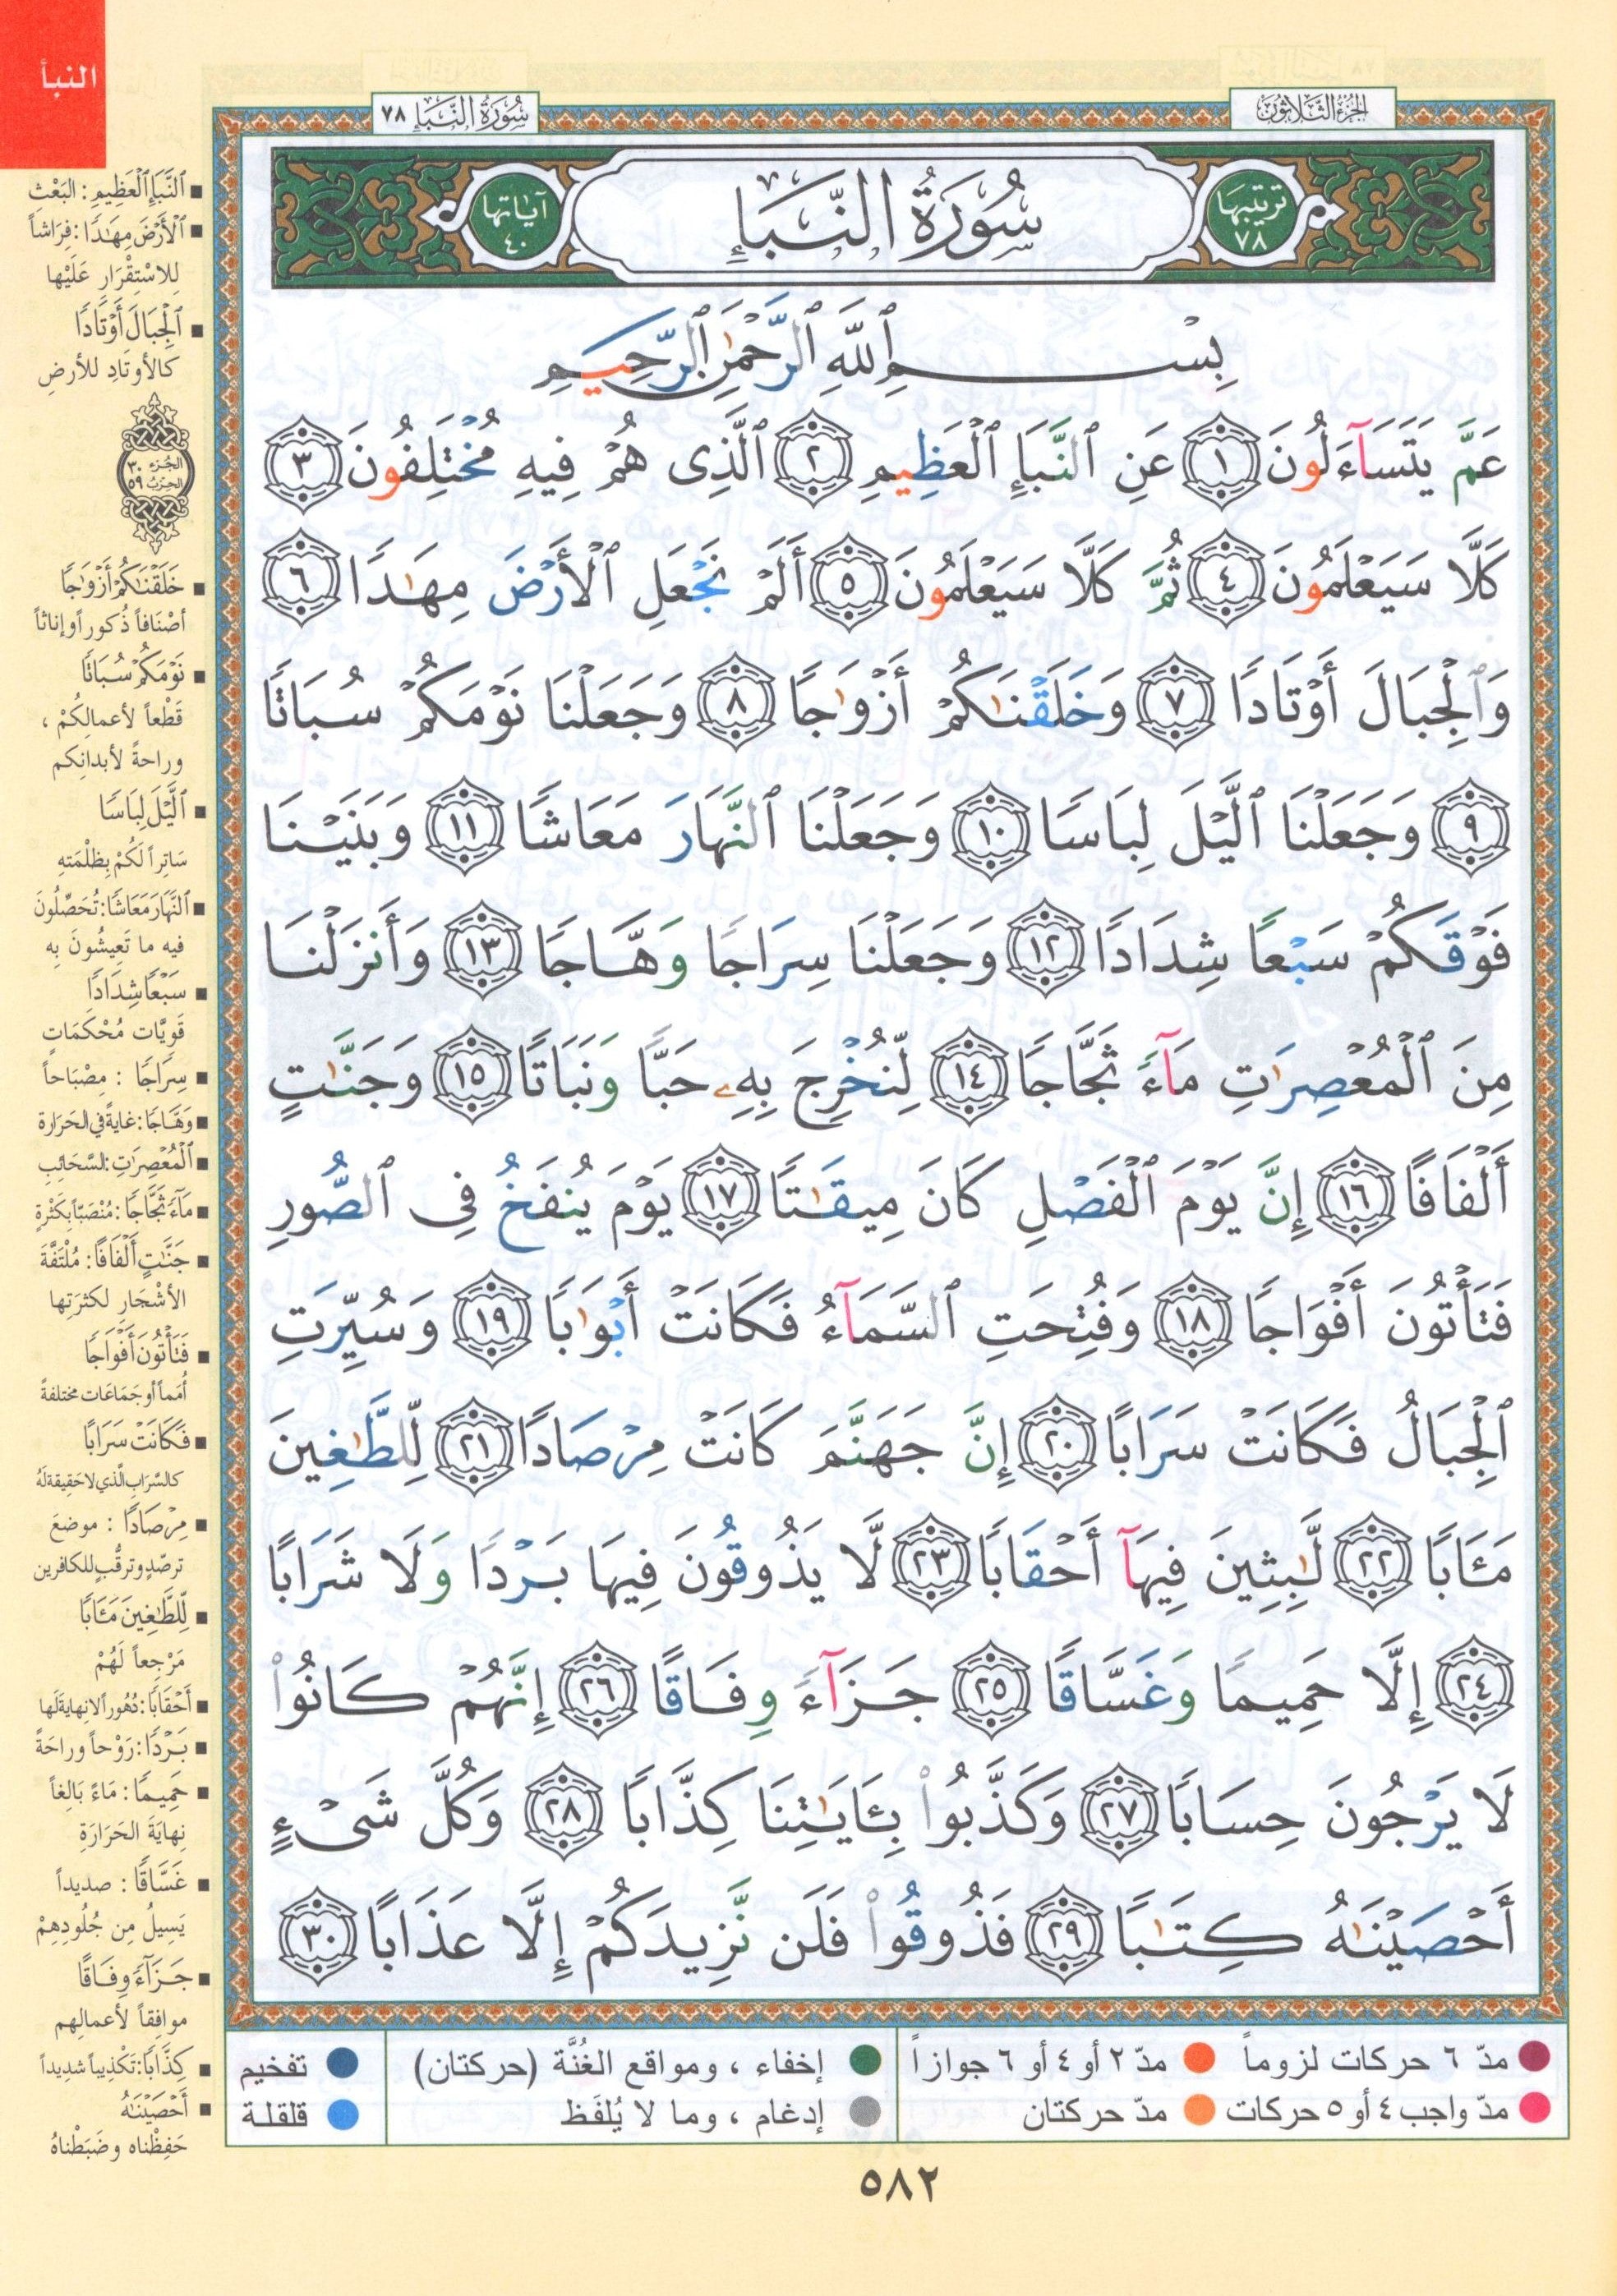 النبأ
الجزء الثلاثون
سُورَةُ النَّبَإِ ٧٨
ترتيبها ٧٨
سُورَةُ النَّبَإِ
آياتها ٤٠
بِسْمِ ٱللَّهِ ٱلرَّحْمَٰنِ ٱلرَّحِيمِ
عَمَّ يَتَسَآءَلُونَ ١ عَنِ ٱلنَّبَإِ ٱلْعَظِيمِ ٢ ٱلَّذِى هُمْ فِيهِ مُخْتَلِفُونَ ٣
كَلَّا سَيَعْلَمُونَ ٤ ثُمَّ كَلَّا سَيَعْلَمُونَ ٥ أَلَمْ نَجْعَلِ ٱلْأَرْضَ مِهَٰدًا ٦
وَٱلْجِبَالَ أَوْتَادًا ٧ وَخَلَقْنَٰكُمْ أَزْوَٰجًا ٨ وَجَعَلْنَا نَوْمَكُمْ سُبَاتًا
٩ وَجَعَلْنَا ٱلَّيْلَ لِبَاسًا ١٠ وَجَعَلْنَا ٱلنَّهَارَ مَعَاشًا ١١ وَبَنَيْنَا
فَوْقَكُمْ سَبْعًا شِدَادًا ١٢ وَجَعَلْنَا سِرَاجًا وَهَّاجًا ١٣ وَأَنزَلْنَا
مِنَ ٱلْمُعْصِرَٰتِ مَآءً ثَجَّاجًا ١٤ لِّنُخْرِجَ بِهِۦ حَبًّا وَنَبَاتًا ١٥ وَجَنَّٰتٍ
أَلْفَافًا ١٦ إِنَّ يَوْمَ ٱلْفَصْلِ كَانَ مِيقَٰتًا ١٧ يَوْمَ يُنفَخُ فِى ٱلصُّورِ
فَتَأْتُونَ أَفْوَاجًا ١٨ وَفُتِحَتِ ٱلسَّمَآءُ فَكَانَتْ أَبْوَٰبًا ١٩ وَسُيِّرَتِ
ٱلْجِبَالُ فَكَانَتْ سَرَابًا ٢٠ إِنَّ جَهَنَّمَ كَانَتْ مِرْصَادًا ٢١ لِّلطَّٰغِينَ
مَـَٔابًا ٢٢ لَّٰبِثِينَ فِيهَآ أَحْقَابًا ٢٣ لَّا يَذُوقُونَ فِيهَا بَرْدًا وَلَا شَرَابًا
٢٤ إِلَّا حَمِيمًا وَغَسَّاقًا ٢٥ جَزَآءً وِفَاقًا ٢٦ إِنَّهُمْ كَانُوا۟
لَا يَرْجُونَ حِسَابًا ٢٧ وَكَذَّبُوا۟ بِـَٔايَٰتِنَا كِذَّابًا ٢٨ وَكُلَّ شَىْءٍ
أَحْصَيْنَٰهُ كِتَٰبًا ٢٩ فَذُوقُوا۟ فَلَن نَّزِيدَكُمْ إِلَّا عَذَابًا ٣٠
ٱلنَّبَإِ ٱلْعَظِيمِ: البَعْث
ٱلْأَرْضَ مِهَٰدًا: فِرَاشاً
لِلاسْتِقْرَارِ عَلَيْها
ٱلْجِبَالَ أَوْتَادًا
كالأوتَادِ للأرضِ
الجزء ٣٠
الحزب ٥٩
خَلَقْنَٰكُمْ أَزْوَٰجًا
أصْنَافاً ذُكوراً وإناثاً
نَوْمَكُمْ سُبَاتًا
قَطْعاً لأعمالِكُمْ،
وراحةً لأبدانِكم
ٱلَّيْلَ لِبَاسًا
سَاتِراً لَكُمْ بِظُلْمَتِهِ
ٱلنَّهَارَ مَعَاشًا: تُحَصِّلُونَ
فيه ما تَعِيشُونَ بِه
سَبْعًا شِدَادًا
قَوِيَّات مُحْكَمَاتٍ
سِرَاجًا : مِصْبَاحاً
وَهَّاجًا: غايةً في الحَرَارة
ٱلْمُعْصِرَٰتِ: السَّحَائِبِ
مَآءً ثَجَّاجًا: مُنْصَبّاً بكَثْرَةٍ
جَنَّٰتٍ أَلْفَافًا: مُلْتَفَّةَ
الأشْجَارِ لكثرَتِها
فَتَأْتُونَ أَفْوَاجًا
أُمَماً أو جَمَاعَات مختلفةً
فَكَانَتْ سَرَابًا
كالسَّرَابِ الَّذي لا حَقِيقة لَهُ
مِرْصَادًا : موضعَ
ترصُّدٍ وترقُّبٍ للكافرين
لِّلطَّٰغِينَ مَـَٔابًا
مَرْجِعاً لَهُمْ
أَحْقَابًا: دُهُوراً لا نِهايةَ لَها
بَرْدًا: رَوْحاً وراحَةً
حَمِيمًا: مَاءً بَالِغاً
نِهايَةَ الحَرَارَةِ
غَسَّاقًا : صديداً
يَسِيلُ مِن جُلُودِهِمْ
جَزَآءً وِفَاقًا
موافِقاً لأعمالِهم
كِذَّابًا: تَكْذِيباً شديداً
أَحْصَيْنَٰهُ
حَفِظْناه وضَبَطْناهُ
مدّ ٦ حركات لزوماً
مدّ ٢ أو ٤ أو ٦ جوازاً
إخفاء ، ومواقع الغُنَّة (حركتان)
تفخيم
مدّ واجب ٤ أو ٥ حركات
مدّ حركتان
إدغام ، وما لا يُلفَظ
قلقلة
٥٨٢